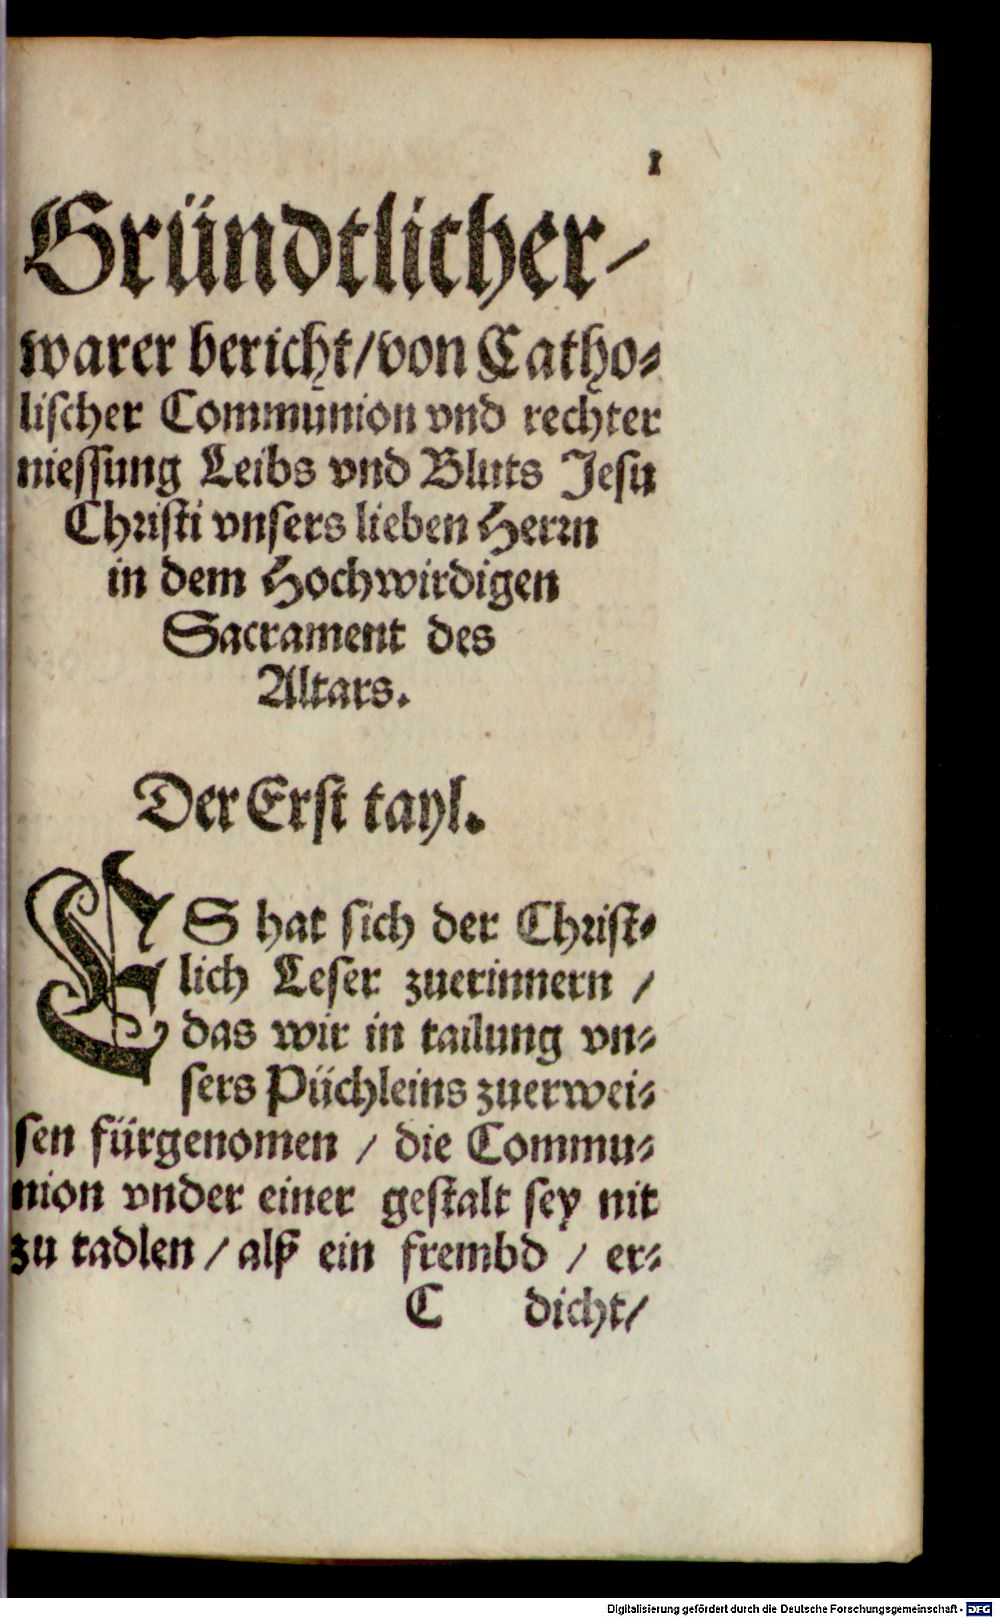 1
Gründtlicher /
warer bericht / von Catho⸗
lischer Communion vnd rechter
niessung Leibs vnd Bluts Jesu
Christi vnsers lieben Herrn
in dem Hochwirdigen
Sacrament des
Altars.
Der Erst tayl.
ES hat sich der Christ⸗
lich Leser zuerinnern /
das wir in tailung vn⸗
sers Püchleins zuerwei⸗
sen fürgenomen / die Commu⸗
nion vnder einer gestalt sey nit
zu tadlen / alß ein frembd / er⸗
C dicht /
Digitalisierung gefördert durch die Deutsche Forschungsgemeinschaft - DFG